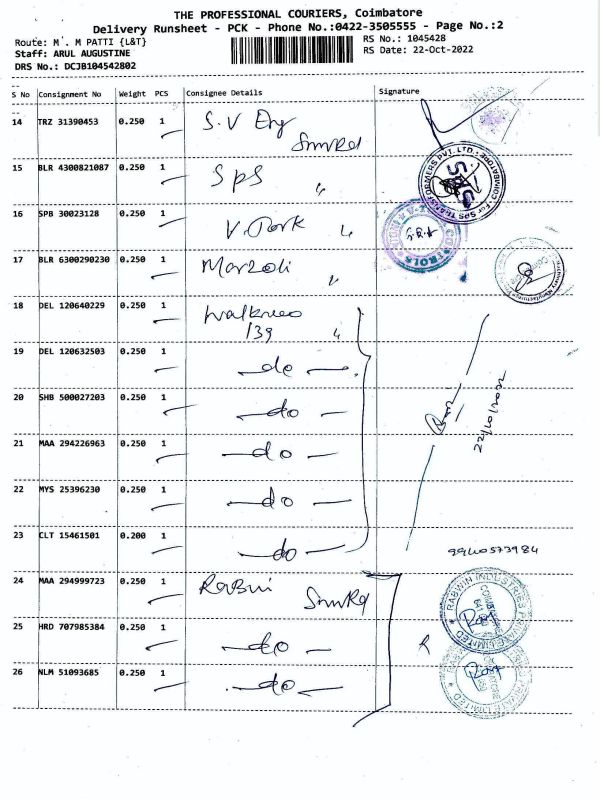 THE PROFESSIONAL COURIERS, Coimbatore
Delivery Runsheet - PCK - Phone No.:0422-3505555 - Page No.:2
Route: M . M PATTI {L&T}
RS No.: 1045428
Staff: ARUL AUGUSTINE
RS Date: 22-Oct-2022
DRS No.: DCJB104542802
S No Consignment No Weight PCS Consignee Details Signature
14 TRZ 31390453 0.250 1 S.V Eng
15 BLR 4300821087 0.250 1 SPS
FOR SPS TRANSFORMERS PVT. LTD., COIMBATORE
16 SPB 30023128 0.250 1 V. Park
CONTROLS
17 BLR 6300290230 0.250 1 Marzoli
18 DEL 120640229 0.250 1
139
19 DEL 120632503 0.250 1 - do -
20 SHB 500027203 0.250 1 - do -
21 MAA 294226963 0.250 1 - do -
22 MYS 25396230 0.250 1 - do -
22/10/2022
23 CLT 15461501 0.200 1 - do -
9940573984
24 MAA 294999723 0.250 1 Rabwi
RABWIN INDUSTRIES PRIVATE LIMITED
25 HRD 707985384 0.250 1 - do -
R
26 NLM 51093685 0.250 1 - do -